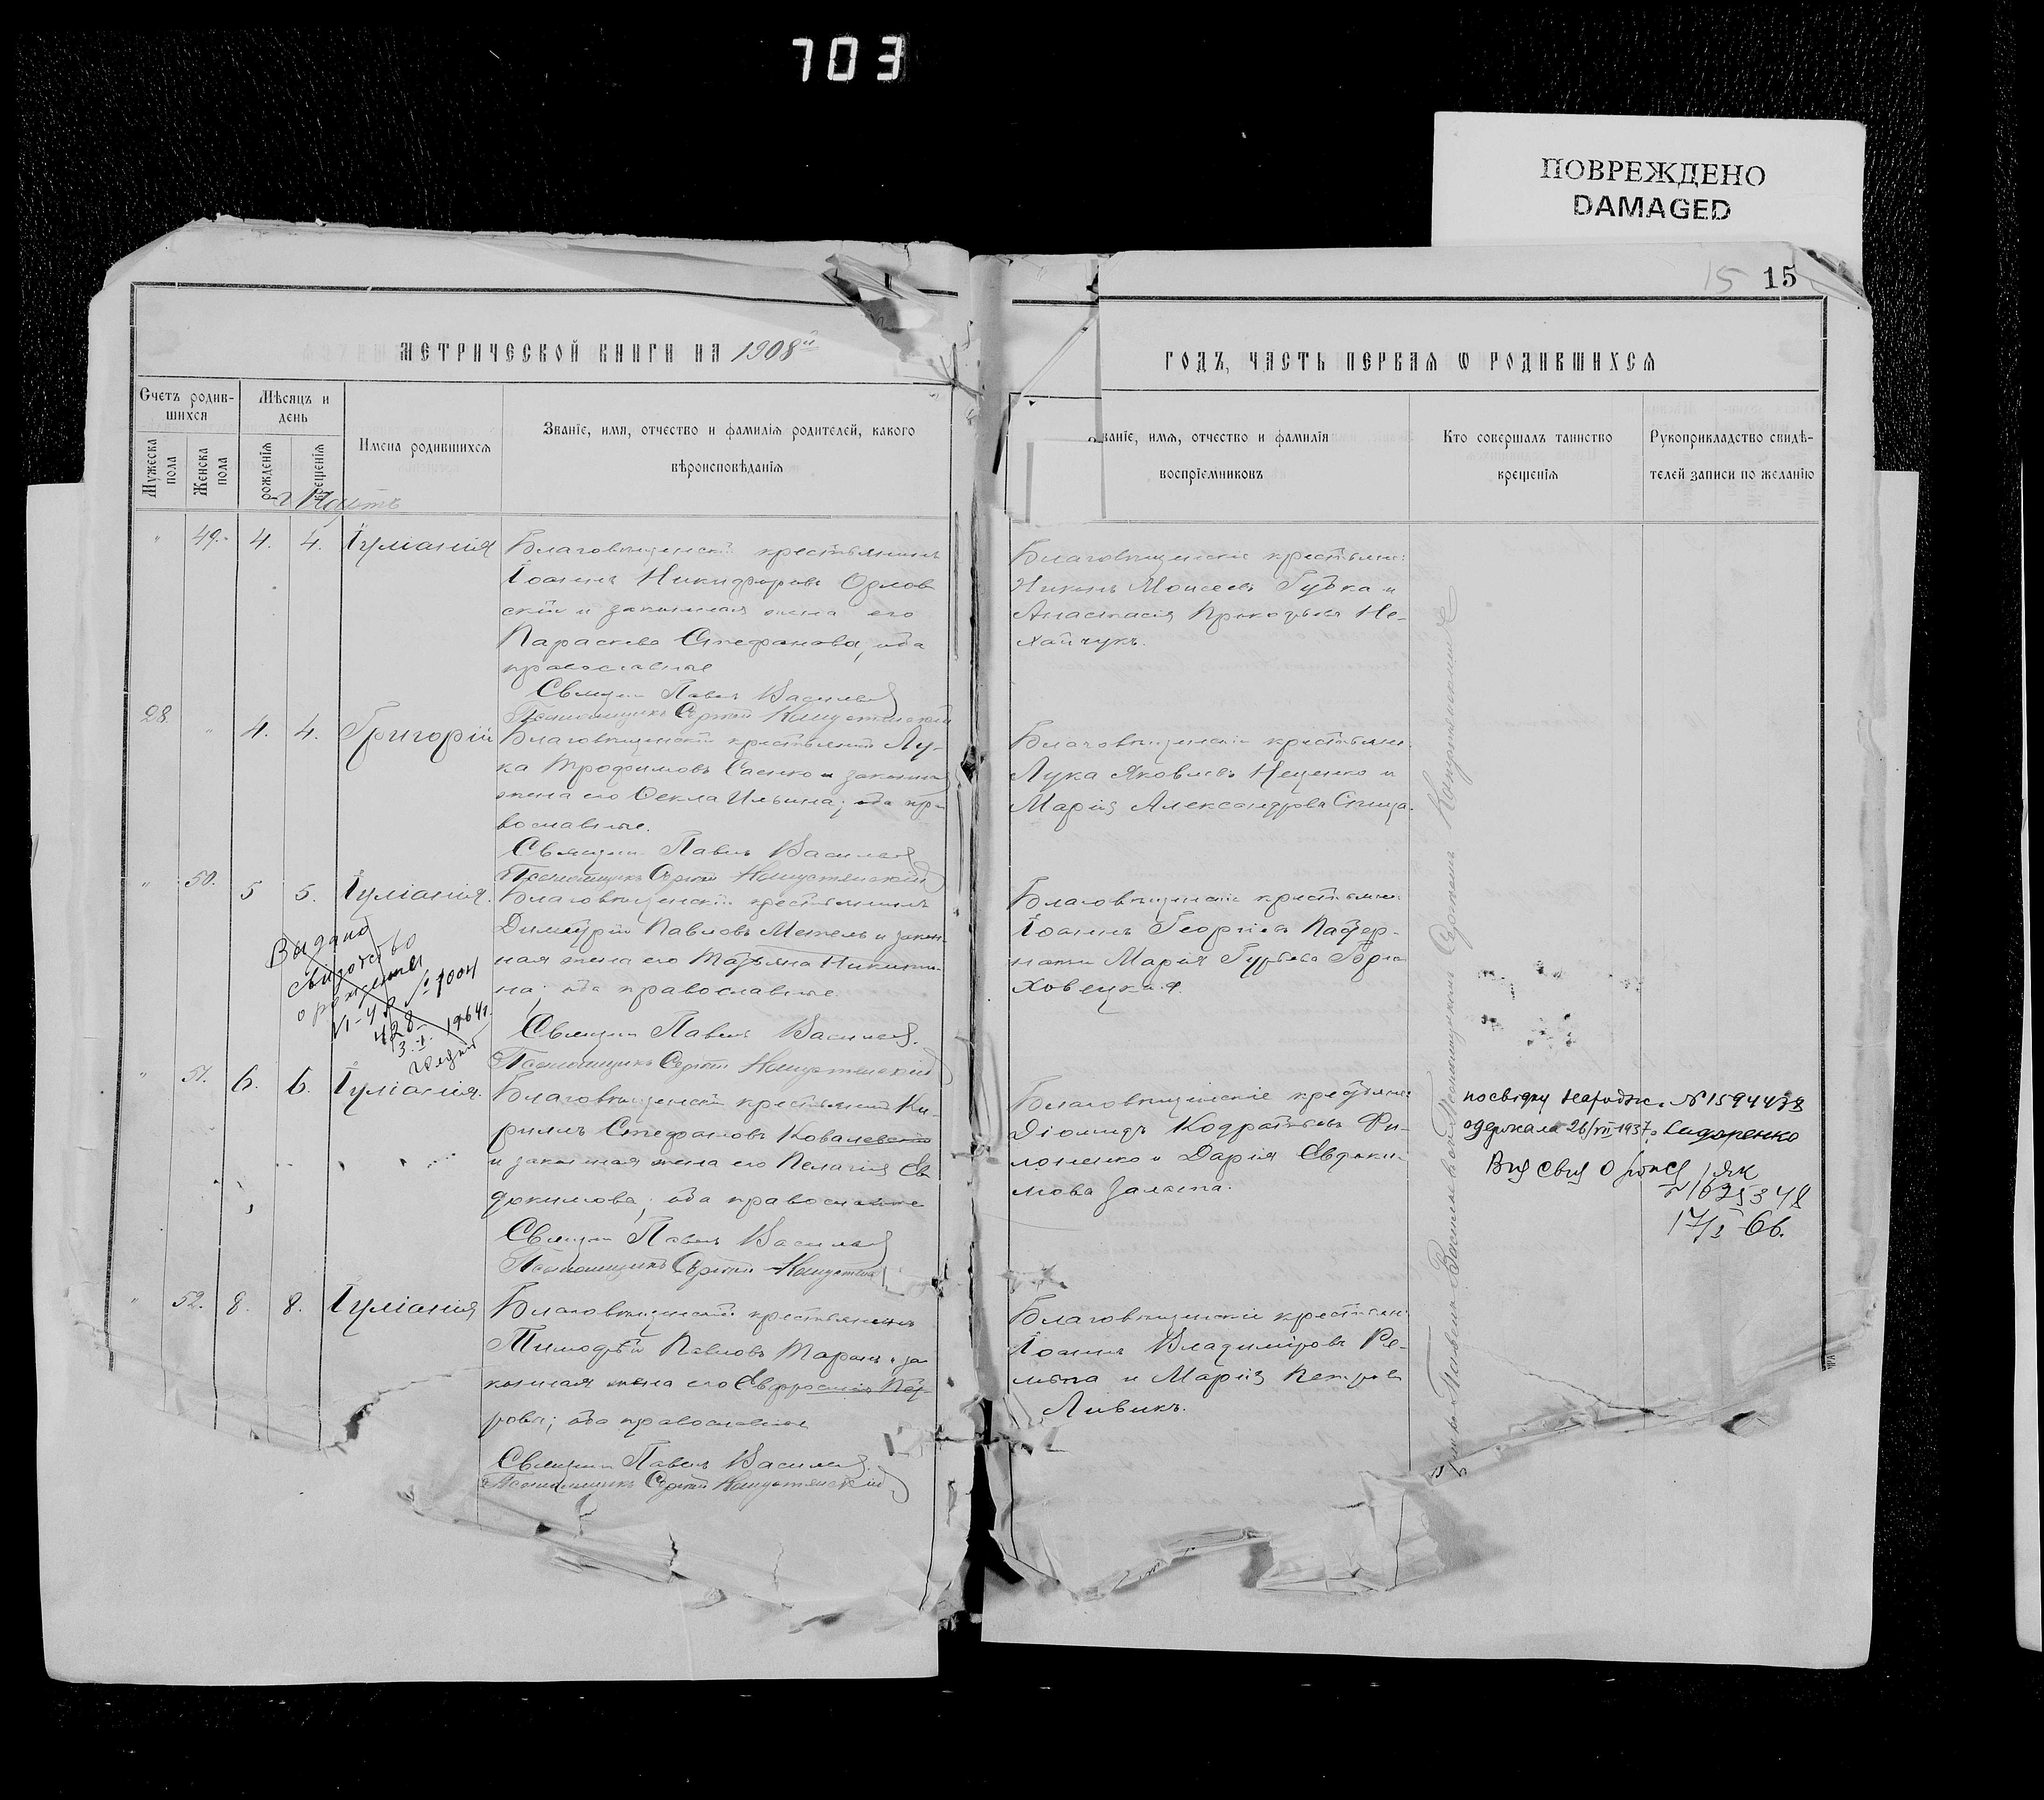 703
ПОВРЕЖДЕНО
DAMAGED
15 15
МЕТРИЧЕСКОЙ КНИГИ НА 1908й
ГОДЪ, ЧАСТЬ ПЕРВАЯ Ѡ РОДИВШИХСЯ
Счетъ родив-
шихся
Мужеска пола
Женска пола
Мѣсяцъ и
день
рожденія
крещенія
Имена родившихся
Званіе, имя, отчество и фамилія родителей, какого
вѣроисповѣданія
Званіе, имя, отчество и фамилія
воспріемниковъ
Кто совершалъ таинство
крещенія
Рукоприкладство свидѣ-
телей записи по желанію
" 49. 4. 4. Іуліанія
Благовѣщенскій крестьянинъ
Іоаннъ Никифоровъ Орлов
скій и законная жена его
Параскева Стефанова, оба
православные
Священ Павелъ Васильев
Псаломщикъ Сергій
Благовѣщенскіе крестьян:
Никонъ Моисеевъ Губка и
Анастасія Прокофьева Не-
хайчукъ.
28. " 4. 4. Григорій
Благовѣщенскій крестьянинъ Лу-
ка Трофимовъ Саенко и законная
жена его Ѳекла Ильина; оба пра-
вославные.
Священ Павелъ Васильев
Псаломщикъ Сергій
Благовѣщенскіе крестьян.
Лука Яковлевъ Неценко и
Марія Александрова Спица.
" 50. 5 5. Іуліанія.
Благовѣщенскій крестьянинъ
Димитрій Павловъ Метель и закон-
ная жена его Татьяна Никити-
на; оба православные.
Священ Павелъ Васильев.
Псаломщикъ Сергій
Благовѣщенскіе крестьян
Іоаннъ Георгіевъ
Марія Гурьева
ховецкая.
Выдано
свидетство
о рождении
VI-ЧР № 1004
428
3.I. 1964г.
" 51. 6. 6. Іуліанія.
Благовѣщенскій крестьянинъ Ки-
риллъ Стефановъ Ковалевскій
и законная жена его Пелагія Ев
докимова; оба православные
Священ Павелъ Васильев
Псаломщикъ Сергій
Благовѣщенскіе крестьяне
Діомидъ Кодратьевъ Фи-
лоненко и Дарія Евдоки-
мова Залата.
посвідку народж. № 1594438
одержала 26/VII 1937 Сидоренко
Вид свид о рожд ЯК
№ 1625348
17/I 66.
" 52. 8. 8. Іуліанія
Благовѣщенскій крестьянинъ
Тимофей Павловъ Таранъ и за
конная жена его Евфросинія Пет
рова; оба православные
Священ Павелъ Васильев.
Псаломщикъ Сергій
Благовѣщенскіе крестьян
Іоаннъ Владиміровъ Ре-
мепа и Марія Петрова
Ливикъ.